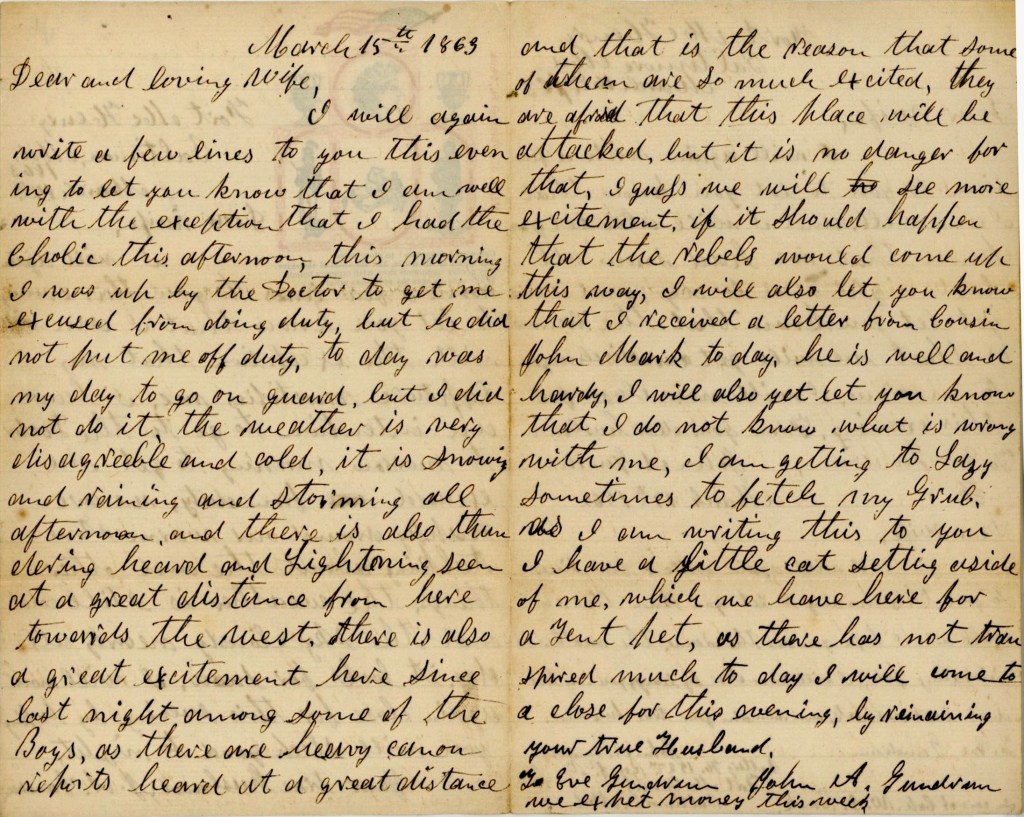 March 15th 1863
Dear and loving Wife,
I will again
write a few lines to you this even
ing to let you know that I am well
with the exception that I had the
Cholic this afternoon, this morning
I was up by the Doctor to get me
excused from doing duty, but he did
not put me off duty, to day was
my day to go on guard, but I did
not do it, the weather is very
disagreeble and cold, it is snowing
and raining and storming all
afternoon, and there is also thun
dering heard and Lightoning seen
at a great distance from here
towards the west, there is also
a great excitement here since
last night among some of the
Boys, as there are heavy canon
reports heard at a great distance
and that is the reason that some
of them are so much excited, they
are afraid that this place will be
attacked, but it is no danger for
that, I guess we will see more
excitement, if it should happen
that the rebels would come up
this way, I will also let you know
that I received a letter from Cousin
John Mark to day, he is well and
hardy, I will also yet let you know
that I do not know what is wrong
with me, I am getting to Lazy
sometimes to fetch my Grub.
as I am writing this to you
I have a little cat setting aside
of me, which we have here for
a Tent pet, as there has not tran
spired much to day I will come to
a close for this evening, by remaining
your true Husband.
To Eve Gundrum John A. Gundrum
we expet money this week